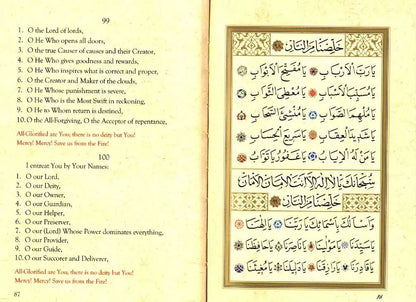 99
1. O the Lord of lords,
2. O He Who opens all doors,
3. O the true Causer of causes and their Creator,
4. O He Who gives goodness and rewards,
5. O He Who inspires what is correct and proper,
6. O He Who is the Maker and Creator of clouds,
7. O He Whose punishment is severe,
8. O He Who is the Most Swift in reckoning,
9. O He to Whom return is destined,
10. O the All-Forgiving, O the Acceptor of repentance,
All-Glorified are You; there is no deity but You!
Mercy! Mercy! Save us from the Fire!
100
I entreat You by Your Names:
1. O our Lord,
2. O our Deity,
3. O our Owner,
4. O our Guardian,
5. O our Helper,
6. O our Preserver,
7. O our (Lord) Whose Power dominates everything,
8. O our Provider,
9. O our Guide,
10. O our Succorer and Deliverer,
All-Glorified are You; there is no deity but You!
Mercy! Mercy! Save us from the Fire!
87
خَلِّصْنَا مِنَ النَّارِ
يَا رَبَّ الْاَرْبَابِ يَا مُفَتِّحَ الْاَبْوَابِ
يَا مُسَبِّبَ الْاَسْبَابِ يَا مُعْطِىَ الثَّوَابِ
يَا مُلْهِمَ الصَّوَابِ يَا مُنْشِئَ السَّحَابِ
يَا شَدِيدَ الْعِقَابِ يَا سَرِيعَ الْحِسَابِ
يَا مَنْ لَهُ الْاِيَابُ يَا غَفُورُ يَا تَوَّابُ
سُبْحَانَكَ يَا لَا اِلٰهَ اِلَّا اَنْتَ الْاَمَانُ الْاَمَانُ
خَلِّصْنَا مِنَ النَّارِ
وَاَسْاَلُكَ بِاَسْمَائِكَ يَا رَبَّنَا يَا اِلٰهَنَا
يَا سَيِّدَنَا يَا مَوْلٰينَا يَا نَاصِرَنَا يَا حَافِظَنَا
يَا قَادِرَنَا يَا رَازِقَنَا يَا دَلِيلَنَا يَا مُغِيثَنَا